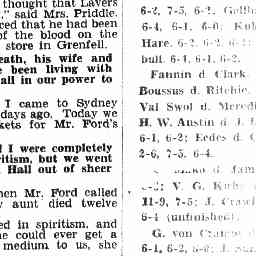 thought that Lavers
," said Mrs. Priddle.
ced that he had been
of the blood on the
store in Grenfell.
eath, his wife and
e been living with
all in our power to
I came to Sydney
days ago. Today we
kets for Mr. Ford's
d I were completely
ritism, but we went
Hall out of sheer
hen Mr. Ford called
y aunt died twelve
ed in spiritism, and
he could ever get a
medium to us, she
6-2, 7-5, 6-2.
6-4, 6-1, 6-0;
Hare, 6-2, 6-2, 6-2;
bull, 6-4, 6-1, 6-2.
Fannin d Clark.
Boussus d. Ritchie.
Val Swol d. Meredi
H. W. Austin d J. L
6-1, 6-2; Eedes d. C
2-6, 7-5, 6-4.
d. Jam
V. G. K
11-9, 7-5; J. Craw
6-4 (unfinished).
G. von Cramm d
6-1, 6-2, 6-0;